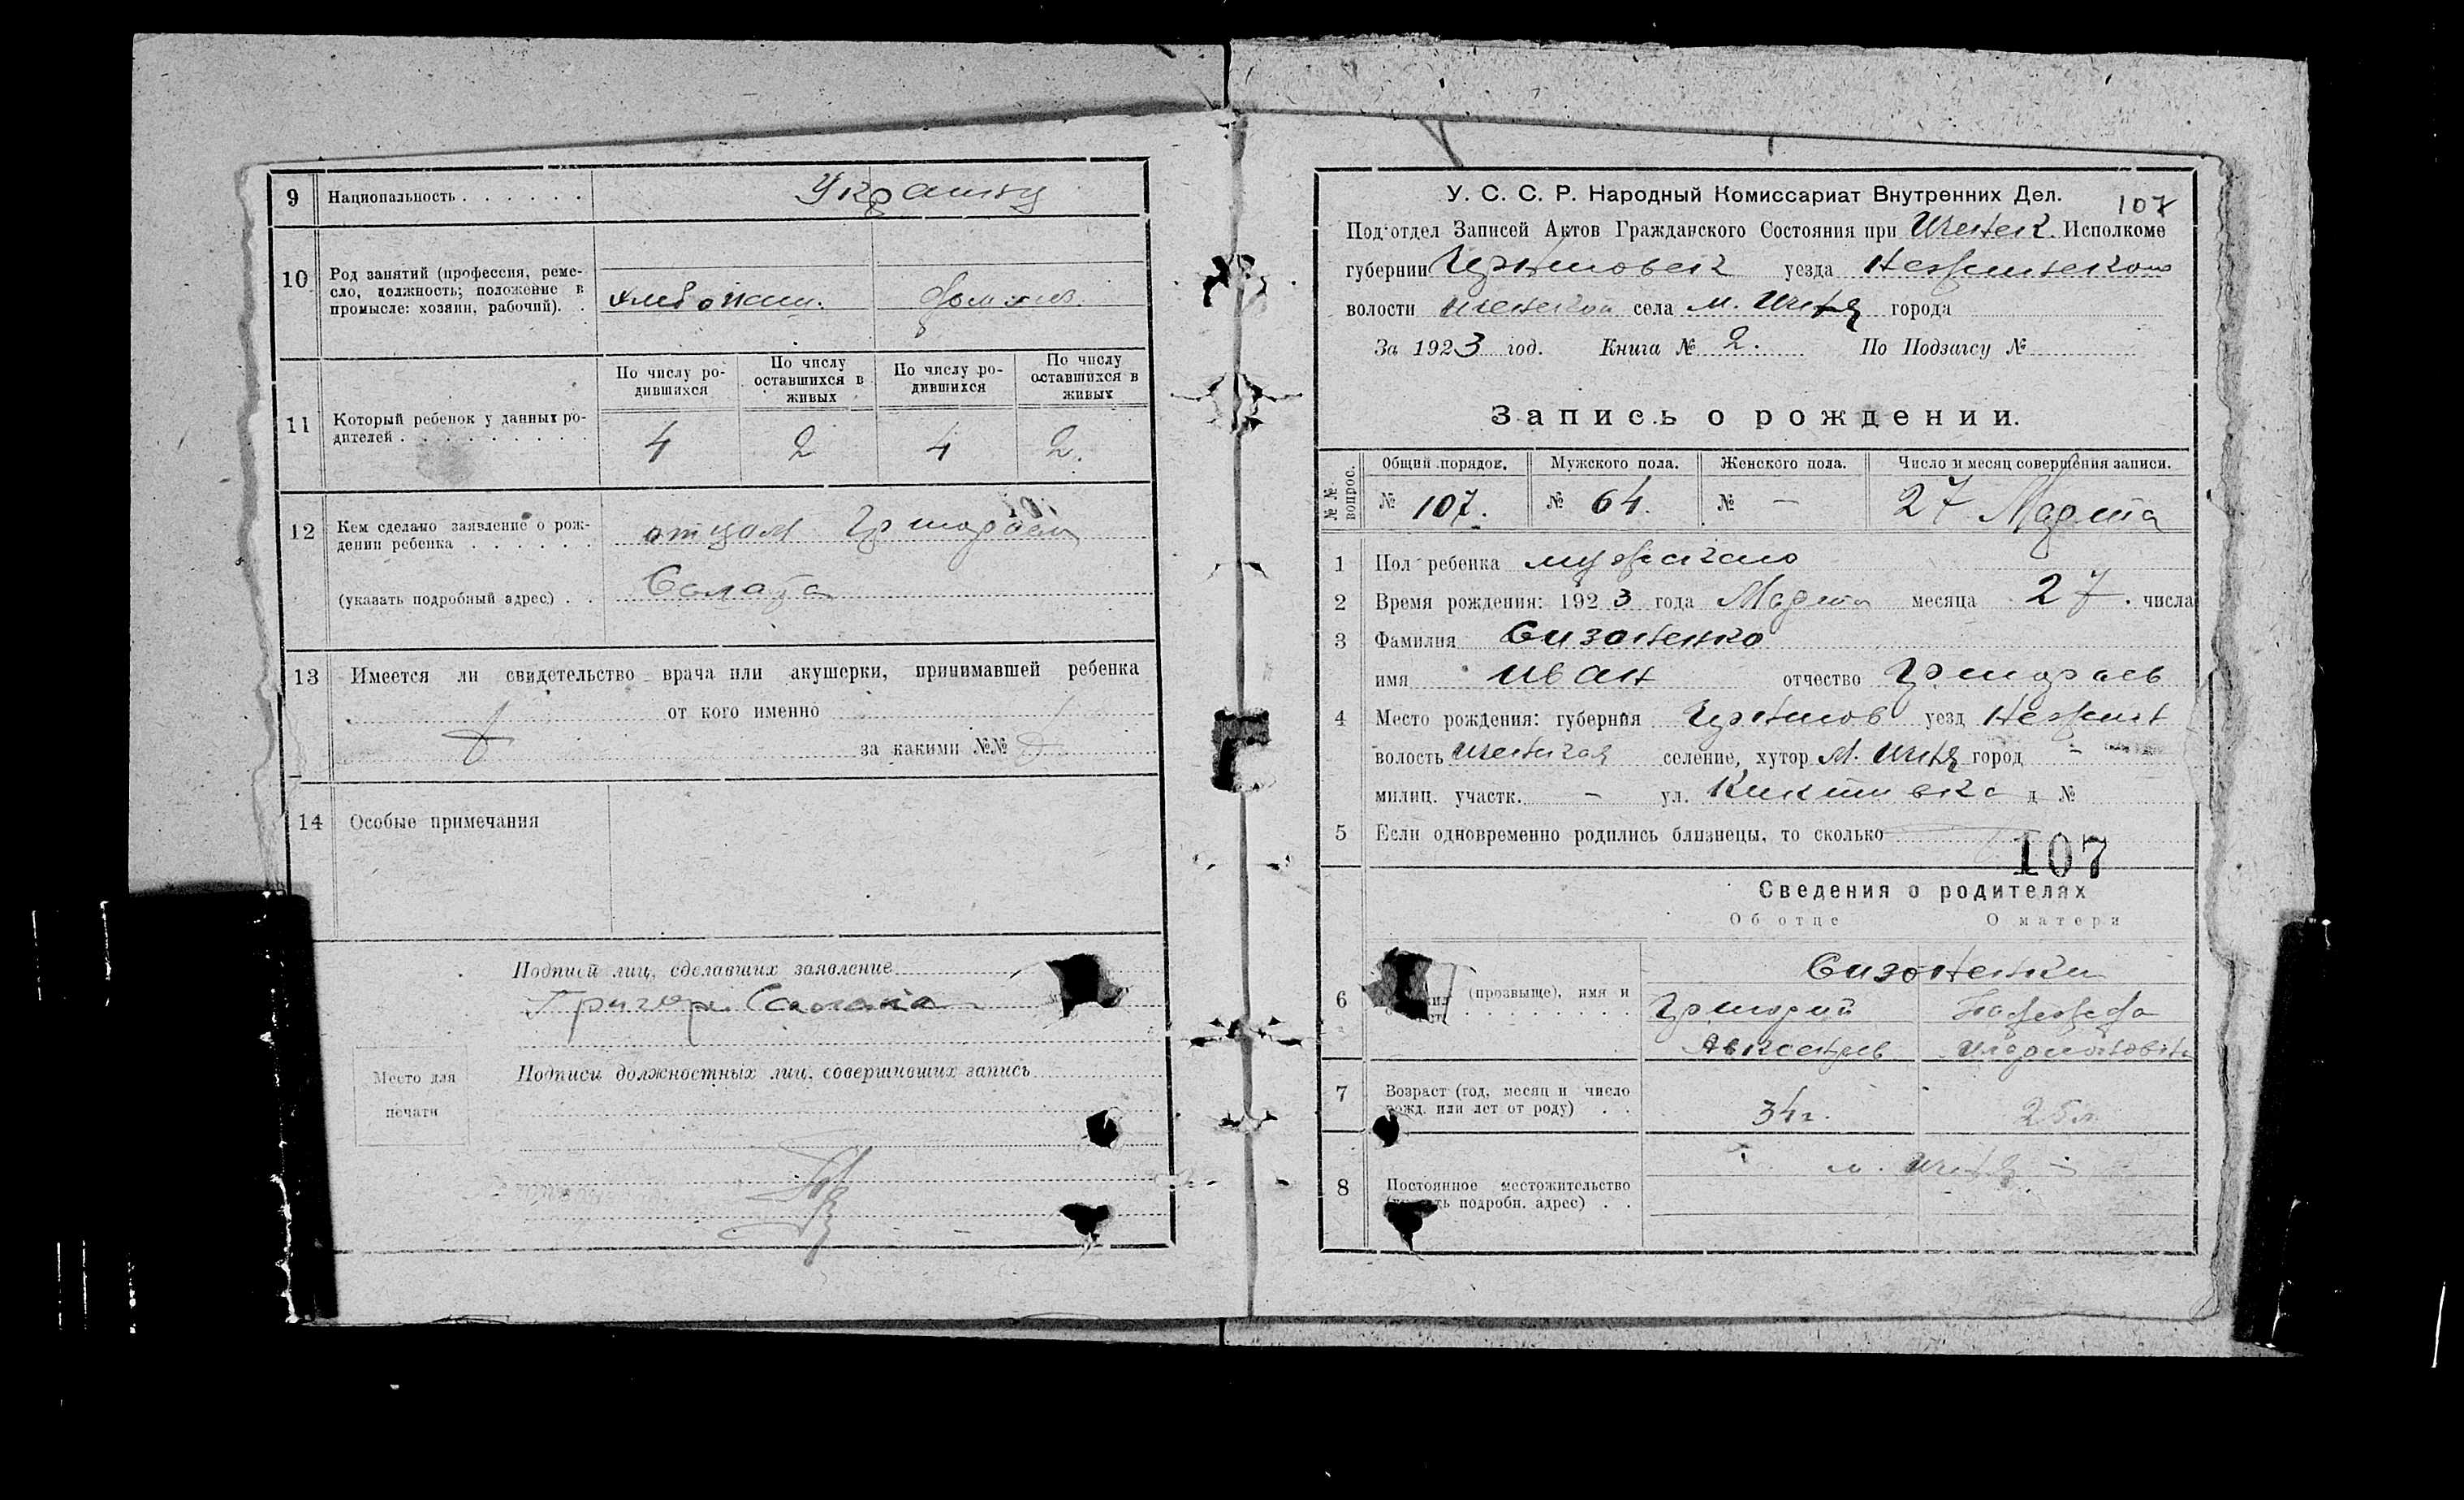 9 Национальность . . . . . . Украинц
10 Род занятий (профессия, реме-
сло, должность; положение в
промысле: хозяин, рабочий). .
хлебопаш.
11 Который ребенок у данных ро-
дителей . . . . . . . . .
По числу ро-
дившихся
По числу
оставшихся в
живых
По числу ро-
дившихся
По числу
оставшихся в
живых
4 2 4 2.
12 Кем сделано заявление о рож-
дении ребенка . . . . . .
отцом Григорием
(указать подробный адрес) . .
Салата
13 Имеется ли свидетельство врача или акушерки, принимавшей ребенка
от кого именно
за какими №№
14 Особые примечания
Подписи лиц, сделавших заявление
Григори Салата
Место для
печати
Подписи должностных лиц, совершивших запись
У. С. С. Р. Народный Комиссариат Внутренних Дел.
107
Подотдел Записей Актов Гражданского Состояния при Ичнек. Исполкоме
губернии Черниговск уезда Нежинского
волости Иченской села м. Ичня города
За 1923 год. Книга № 2. По Подзагсу №
Запись о рождении.
№№ вопрос.
Общий порядок. Мужского пола. Женского пола. Число и месяц совершения записи.
№ 107. № 64. № — 27 Марта
1 Пол ребенка мужского
2 Время рождения: 1923 года Марта месяца 27. числа
3 Фамилия Сизоненко
имя Иван отчество Григорьев
4 Место рождения: губерния Чернигов уезд Нежин
волость Иченская селение, хутор М. Ичня город -
милиц. участк. - ул. д №
5 Если одновременно родились близнецы, то сколько
107
Сведения о родителях
Об отце О матери
6 (прозвище), имя и
Сизоненки
Григорий Надежда
Авксентьев
7 Возраст (год, месяц и число
рожд. или лет от роду) . .
34г. 25л.
8 Постоянное местожительство
подробн. адрес) . .
м. Ичня